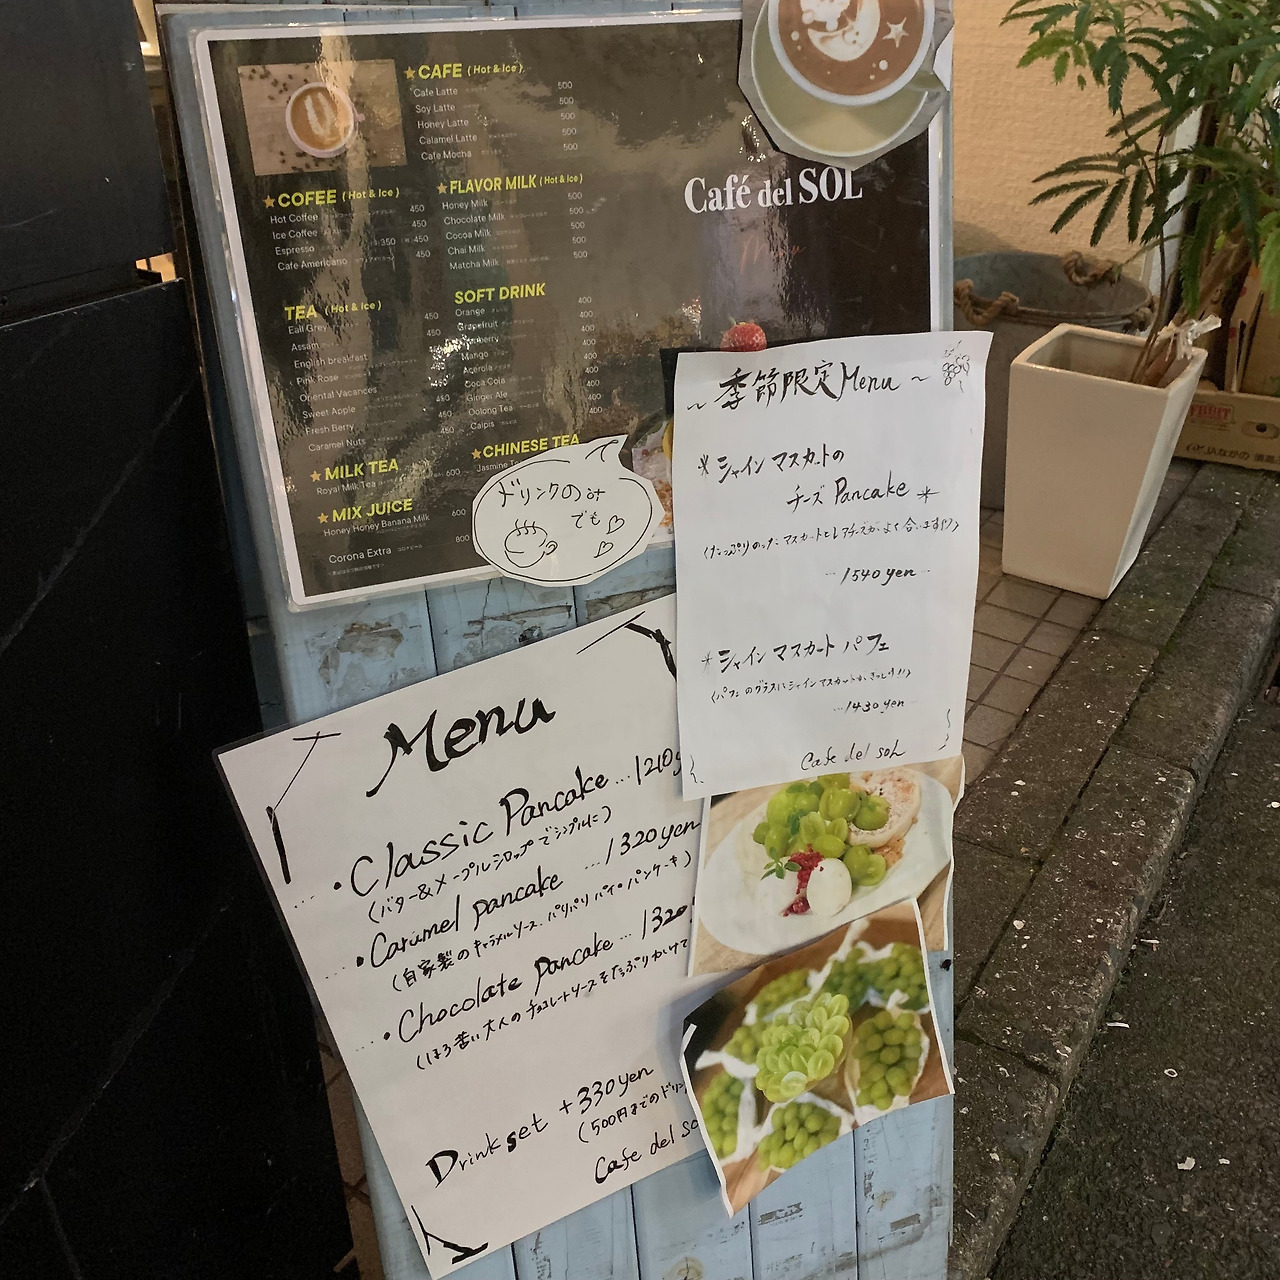 ★CAFE (Hot & Ice)
Cafe Latte 500
Soy Latte 500
Honey Latte 500
Calamel Latte 500
Cafe Mocha 500
★COFEE (Hot & Ice)
Hot Coffee 450
Ice Coffee 450
Espresso 350 450
Cafe Americano 450
★FLAVOR MILK (Hot & Ice)
Honey Milk 500
Chocolate Milk 500
Cocoa Milk 500
Chai Milk 500
Matcha Milk 500
TEA (Hot & Ice)
Eall Grey 450
Assam
English breakfast
Pink Rose
Oriental Vacances
Sweet Apple 450
Fresh Berry 450
Caramel Nuts 450
SOFT DRINK
Orange 400
Grapefruit 400
400
Mango 400
Acerola 400
Coca Cola 400
Ginger Ale 400
Oolong Tea 400
Calpis 400
★MILK TEA
Royal Milk Tea 600
★MIX JUICE
Honey Honey Banana Milk 600
Corona Extra 800
★CHINESE TEA
Jasmine
Café del SOL
Menu
ドリンクのみ
でも
~季節限定Menu~
*シャインマスカットの
チーズ Pancake*
(たっぷりのったマスカットとレアチーズがよく合います!!)
...1540yen...
*シャインマスカットパフェ
(パフェのグラスにシャインマスカットがぎっしり!!)
...1430yen
Cafe del soL
Menu
・Classic Pancake...1210
(バター&メープルシロップでシンプルに)
・Caramel pancake ...1320yen
(自家製のキャラメルソース、パリパリパイのパンケーキ)
・Chocolate pancake...1320
(ほろ苦い大人のチョコレートソースをたっぷりかけて
Drink set +330yen
(500円までのドリン
Cafe del so